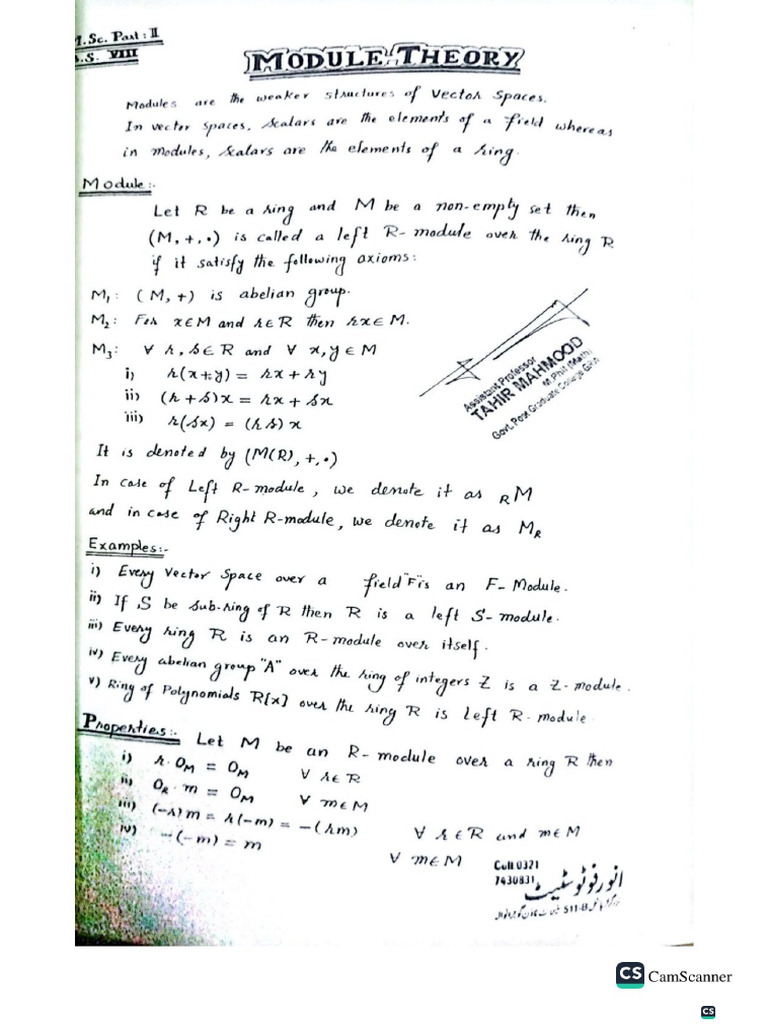 M.Sc. Part : II
B.S. VIII
MODULE THEORY
Modules are the weaker structures of Vector Spaces.
In vector spaces, scalars are the elements of a field whereas
in modules, scalars are the elements of a ring.
Module:-
Let R be a ring and M be a non-empty set then
(M, +, •) is called a left R- module over the ring R
if it satisfy the following axioms:
M₁: (M, +) is abelian group.
M₂: For x∈M and r∈R then rx∈M.
M₃: ∀ r, s∈R and ∀ x, y∈M
i) r(x+y) = rx + ry
ii) (r + s)x = rx + sx
iii) r(sx) = (rs) x
Assistant Professor
TAHIR MAHMOOD
M.Phil (Math)
Govt. Post Graduate College GRW
It is denoted by (M(R), +, •)
In case of Left R-module, we denote it as ᵣM
and in case of Right R-module, we denote it as Mᵣ
Examples:-
i) Every Vector Space over a field "F" is an F- Module.
ii) If S be sub-ring of R then R is a left S- module.
iii) Every ring R is an R-module over itself.
iv) Every abelian group "A" over the ring of integers Z is a Z-module.
v) Ring of Polynomials R[x] over the ring R is left R-module.
Properties:- Let M be an R- module over a ring R then
i) r · 0ₘ = 0ₘ ∀ r∈R
ii) 0ᵣ · m = 0ₘ ∀ m∈M
iii) (-r)m = r(-m) = -(rm) ∀ r∈R and m∈M
iv) -(-m) = m ∀ m∈M
Cell 0321
7430831
انور فوٹو سٹیٹ
511-B
CS CamScanner
CS